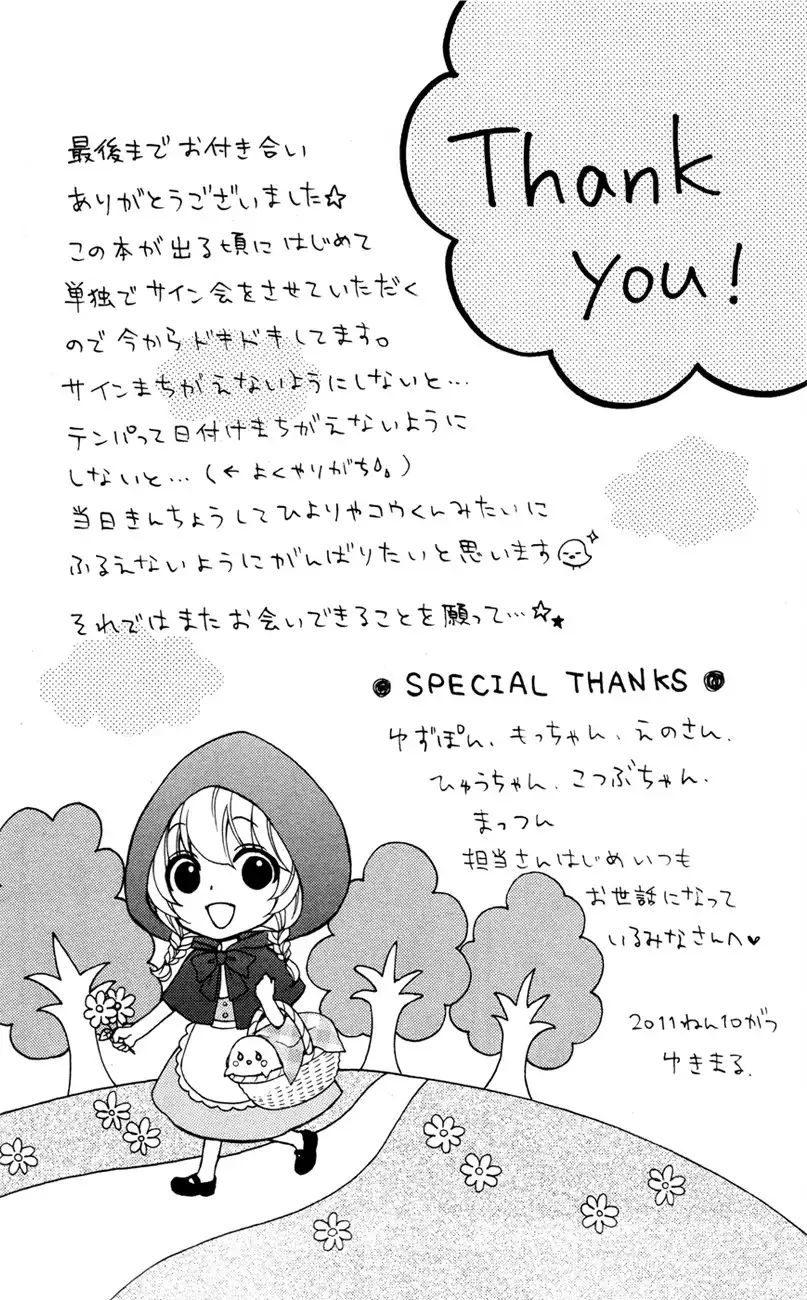 Thank
you!
最後まで お付き合い
ありがとうございました☆
この本が出る頃に はじめて
単独で サイン会をさせていただく
ので 今から ドキドキしてます。
サインまちがえないようにしないと…
テンパって日付けまちがえないように
しないと…(← よくやりがち)
当日きんちょうしてひよりやコウくんみたいに
ふるえないようにがんばりたいと思います
それではまたお会いできることを願って…☆★
SPECIAL THANKS
ゆずぽん、もっちゃん、えのさん、
ひゅうちゃん、こつぶちゃん、
まっつん
担当さんはじめいつも
お世話になって
いるみなさんへ♥
2011ねん10がつ
ゆきまる.